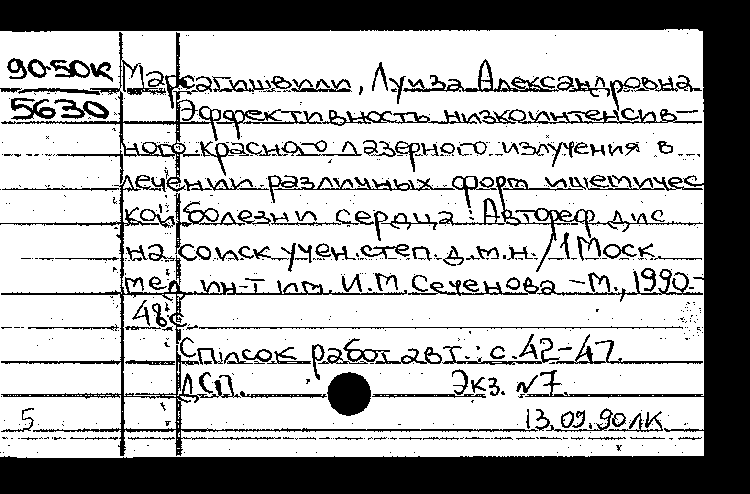 90-50К Марсагишвили, Луиза Александровна
5630 Эффективность низкоинтенсив-
ного красного лазерного излучения в
лечении различных форм ишемичес
кой болезни сердца: Автореф. дис.
на соиск. учен. степ. д.м.н. / 1 Моск.
мед. ин-т им. И.М. Сеченова -М., 1990.-
48с.
Список работ авт.: с. 42-47.
ДСП. Экз. N7.
5 13.09.90ЛК